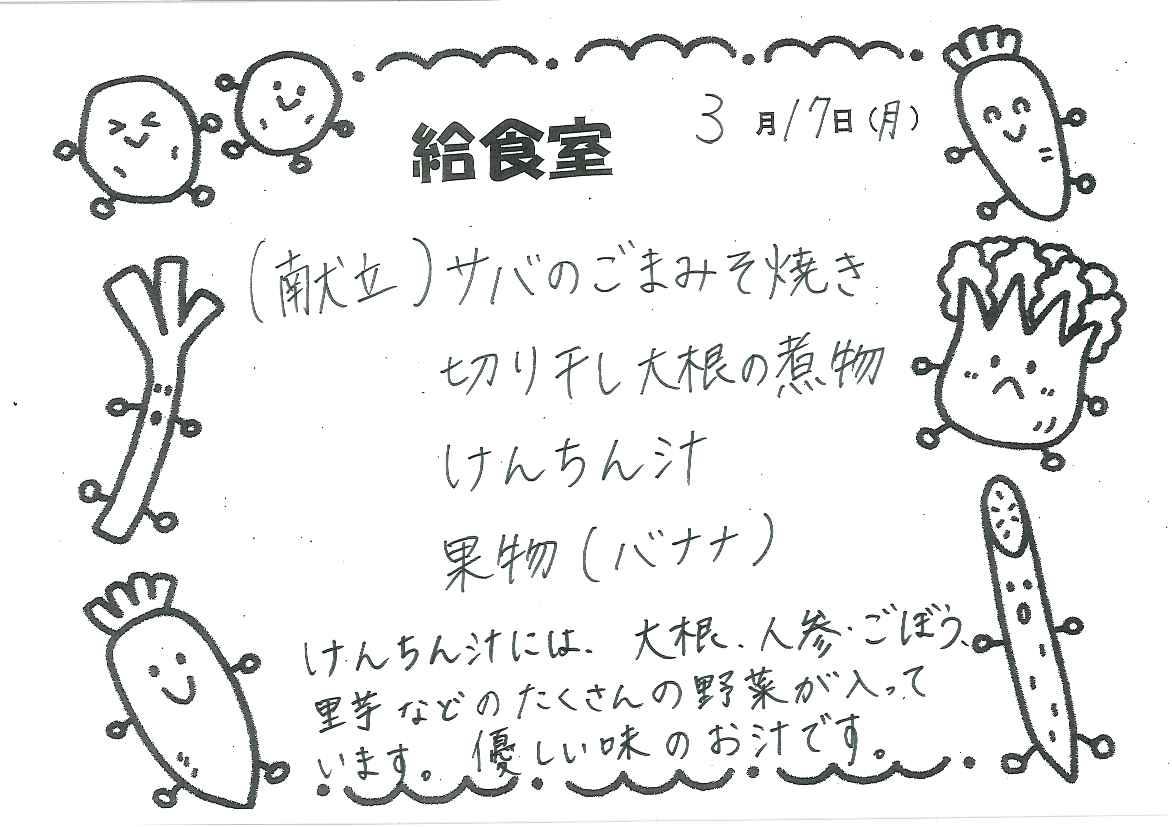 給食室 3月17日(月)
(献立)サバのごまみそ焼き
切り干し大根の煮物
けんちん汁
果物(バナナ)
けんちん汁には、大根、人参、ごぼう、
里芋などのたくさんの野菜が入って
います。優しい味のお汁です。